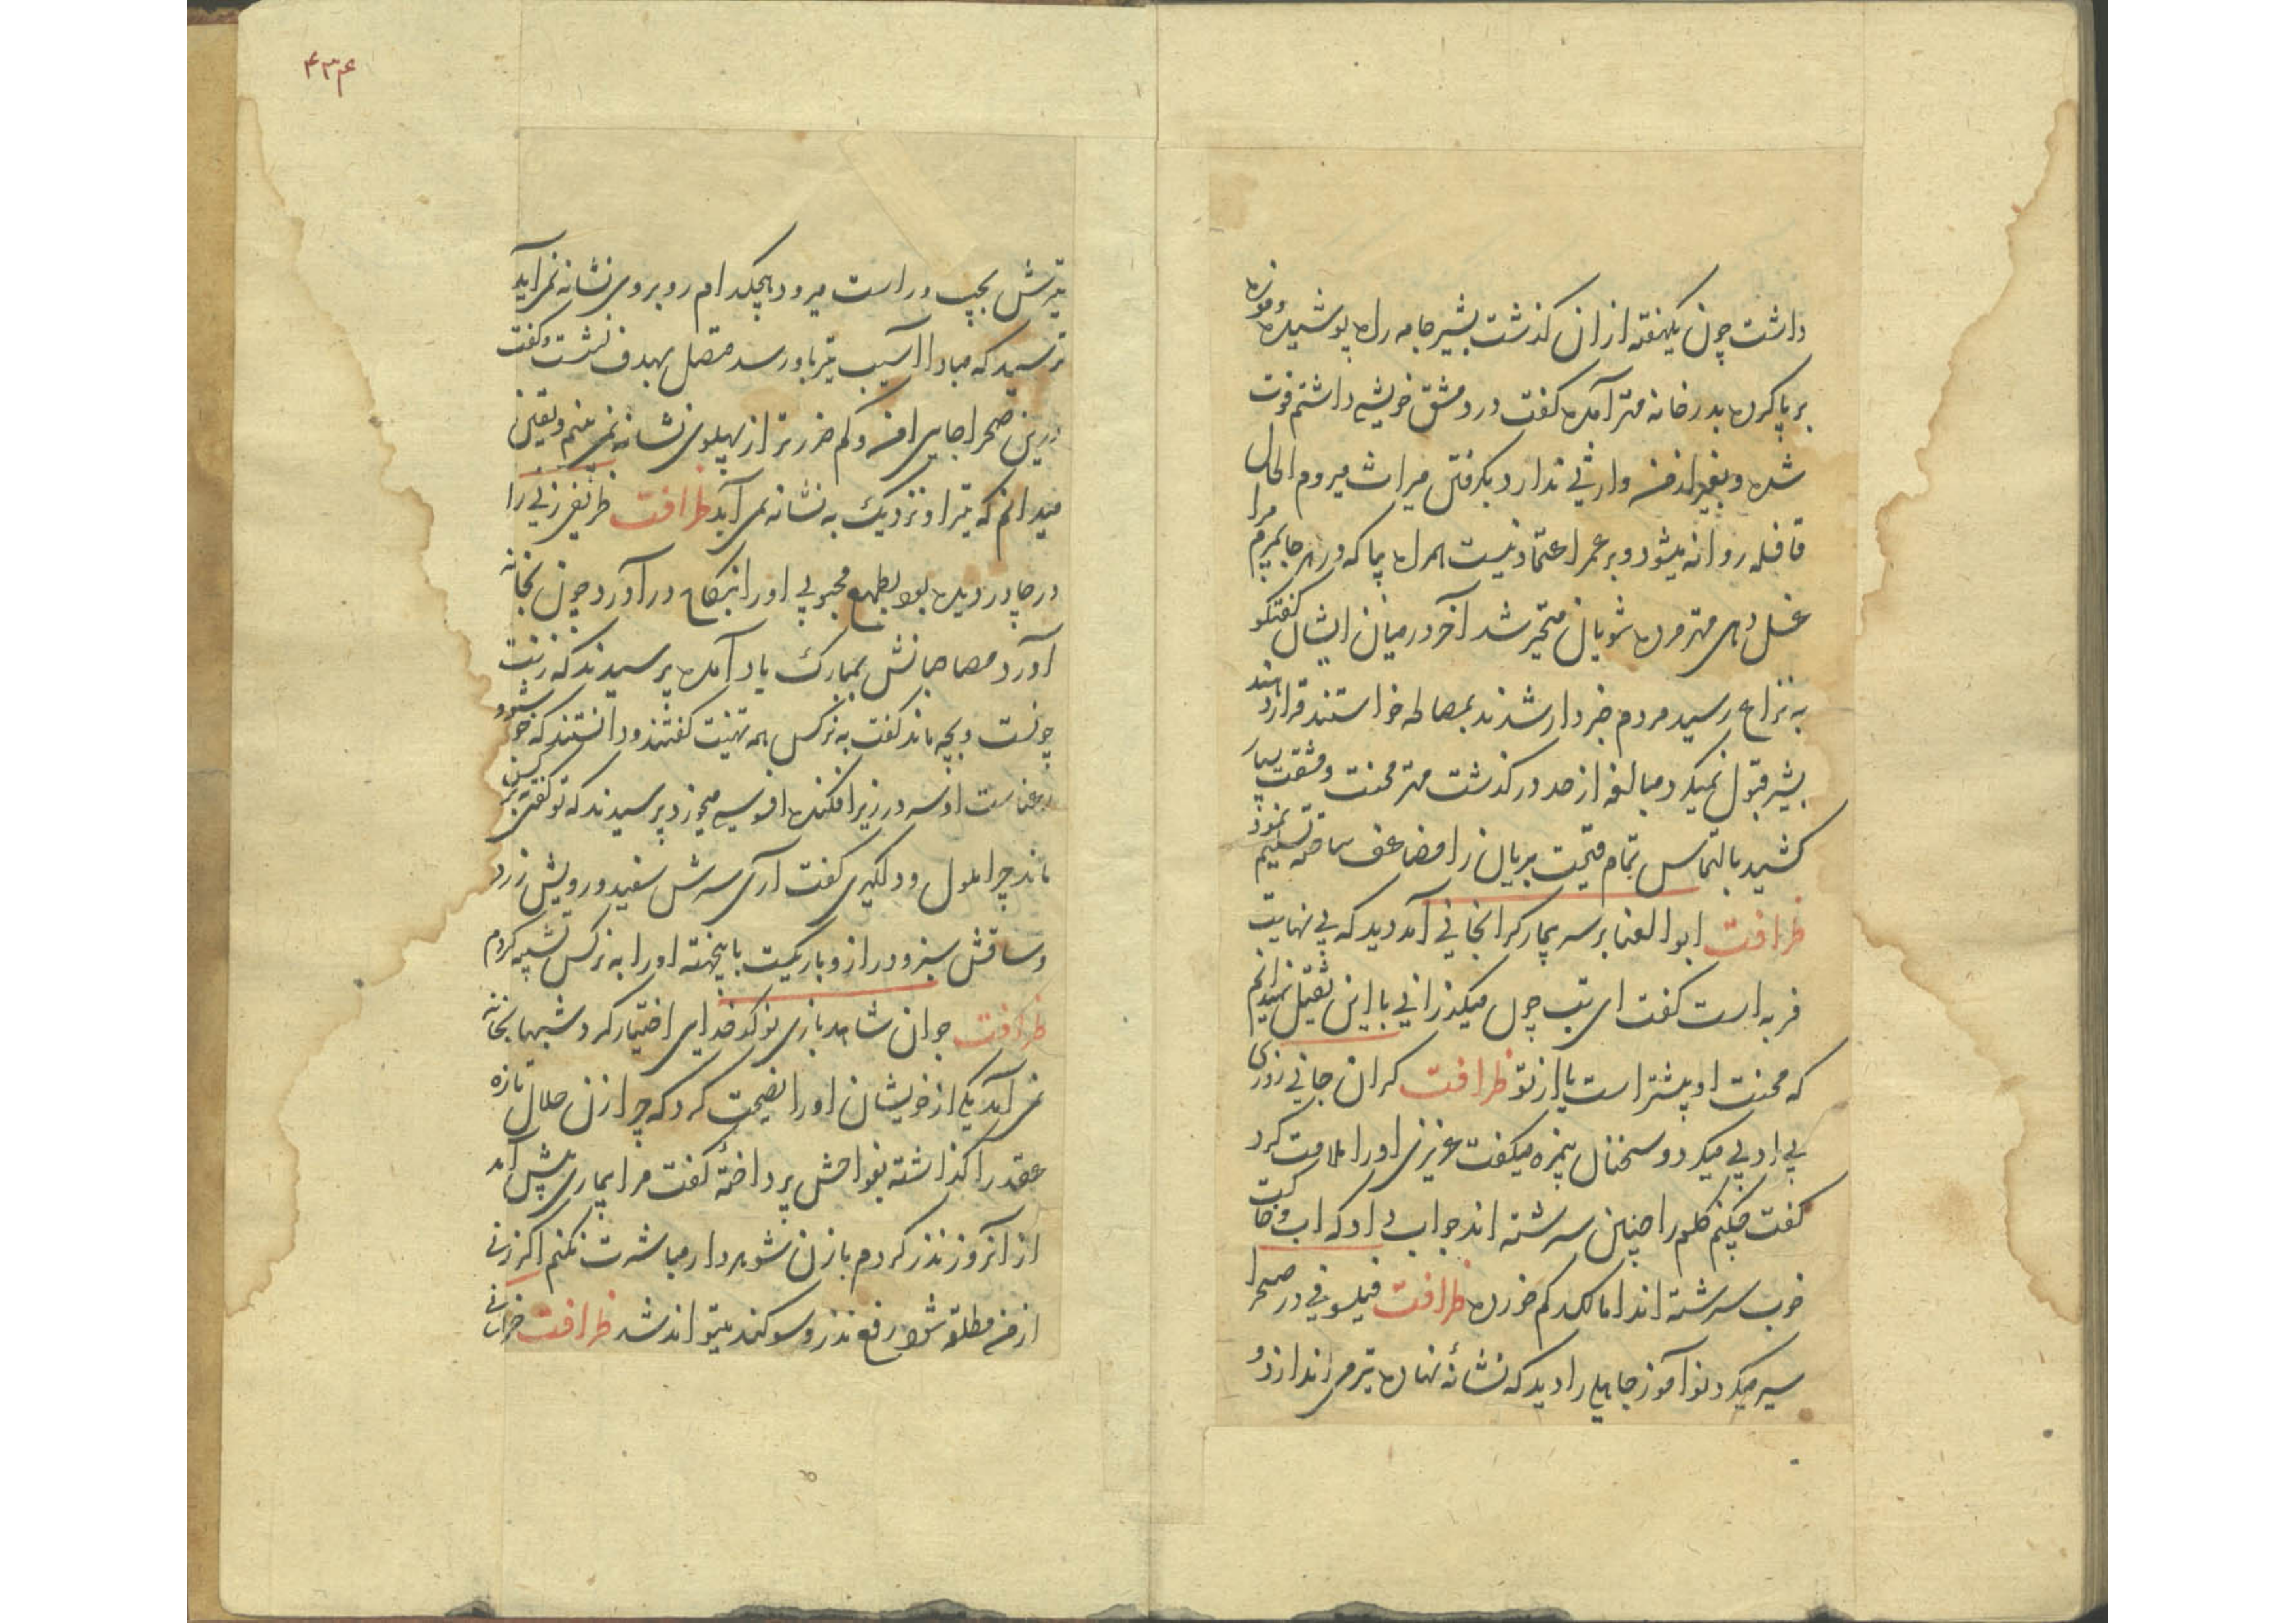 داشت چون یکهفته ازان گذشت بشیر جامه راه پوشیده و موزه
برپا کرده بدر خانه مهتر آمده گفت در دمشق خویشی داشتم فوت
شده و بغیر از من وارثی ندارد بگرفتن میراث میروم الحال
قافله روانه میشود و بر عمر اعتماد نیست همراه بیا که در هر جا بمیرم مرا
غسل دهی مهتر مرده شویان متحیر شد آخر در میان ایشان گفتگو
به نزاع رسید مردم خبردار شدند بمصالحه خواستند قرار دهند
بشیر قبول نمیکرد مبالغه از حد در گذشت مهتر محنت و مشقت بسیار
کشید بالتماس تمام قیمت بریان را مضاعف ساخته تسلیم نمود
ظرافت ابوالعنبا بر سر بیمار گرانجانی آمد دید که بی نهایت
فربه است گفت ای تب چون میگذرانی با این ثقیل نمیدانم
که محنت او بیشتر است یا از تو ظرافت گران جانی روزی
بی ادبی میکرد و سخنان بیمزه میگفت عزیزی اورا ملامت کرد
گفت چکنم گلم را چنین سرشته اند جواب داد که آب و خاکت
خوب سرشته اند اما لگد کم خورده ظرافت فیلسوفی در صحرا
سیر میکرد نوآموز جاهلی را دید که نشانه نهاده تیر می اندازد و
۴۳۴
تیرش بچپ و راست میرود هیچکدام روبروی نشانه نمی آید
ترسید که مبادا آسیب تیر باو رسد متصل بهدف نشست و گفت
درین صحرا جایی امن و کم ضررتر از پهلوی نشانه نمی بینم و یقین
میدانم که تیر او نزدیک به نشانه نمی آید ظرافت ظریفی زنی را
در چادر دیده بود بطمع محبوبی اورا بنکاح در آورد چون بخانه
آورد مصاحبانش بمبارک باد آمده پرسیدند که زنت
چونست و بچه ماند گفت به نرگس همه تهنیت گفتند و دانستند که خوشرو
رعناست او سر در زیر افکنده افسوس میخورد پرسیدند که تو گفتی به نرگس
ماند چرا ملول و دلگیری گفت آری سرش سفید و رویش زرد
و ساقش سبز و دراز و باریکیت بابنجهته اورا به نرگس تشبیه کردم
ظرافت جوان شاهد بازی نو کدخدای اختیار کرد شبها بخانه
نمی آمد یکی از خویشان اورا نصیحت کرد که چرا زن حلال تازه
عقد را گذاشته بفواحش پرداخته گفت مرا بیماری پیش آمد
از آنروز نذر کردم با زن شوهردار مباشرت نکنم اگر زنی
از من مطلقه شود رفع نذر و سوکند میتواند شد ظرافت